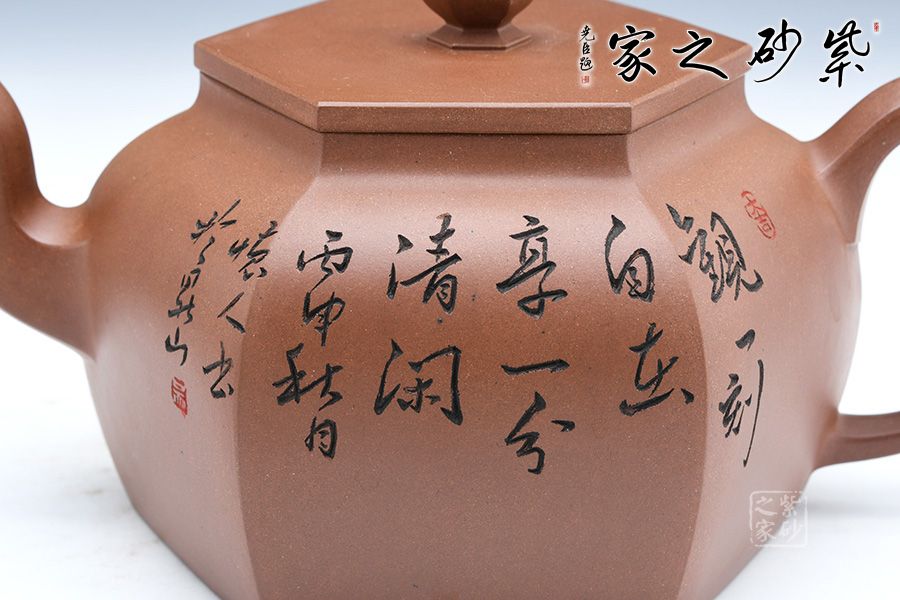 紫砂之家
尭臣题
觀一刻
自在
享一分
清闲
丙申秋月
紫人书
紫砂
之家